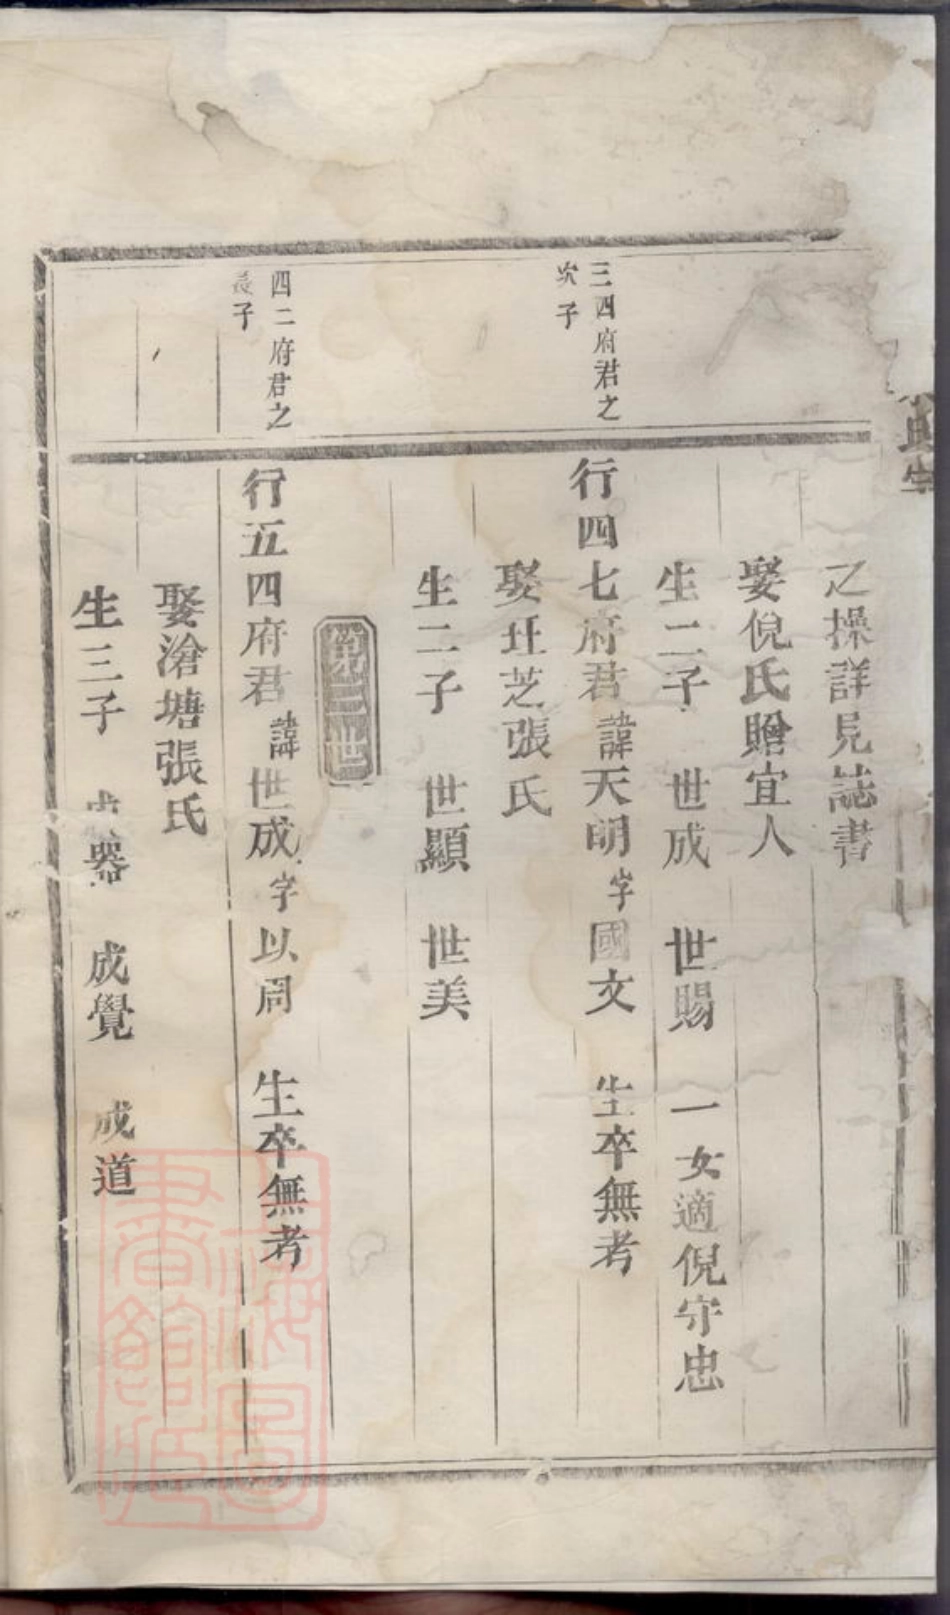 氏宗
之操詳見誌書
娶倪氏贈宜人
生二子 世成 世賜 一女適倪守忠
三四府君之
次子
行四七府君諱天明字國文 生卒無考
娶圩芝張氏
生二子 世顯 世美
第三世
四二府君之
長子
行五四府君諱世成字以周 生卒無考
娶滄塘張氏
生三子 器 成覺 成道
上海圖
書館藏